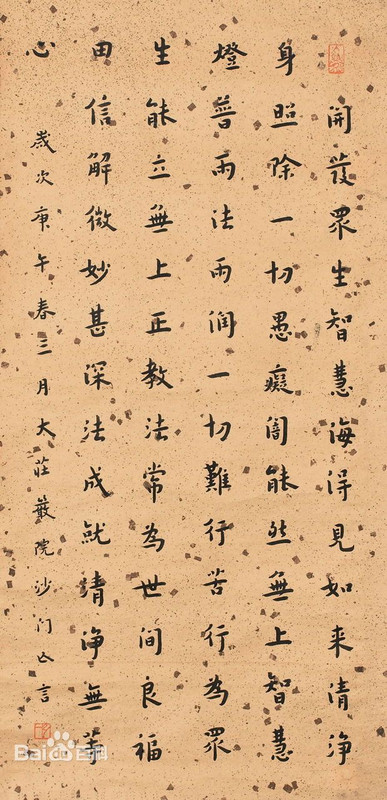 開發眾生智慧海得見如来清淨
身照除一切愚癡闇能然無上智慧
燈普雨法雨潤一切難行苦行為眾
生能立無上正教法常為世间良福
田信解微妙甚深法成就清淨無等
心
歲次庚午春三月大莊嚴院沙门亡言
Bai百科